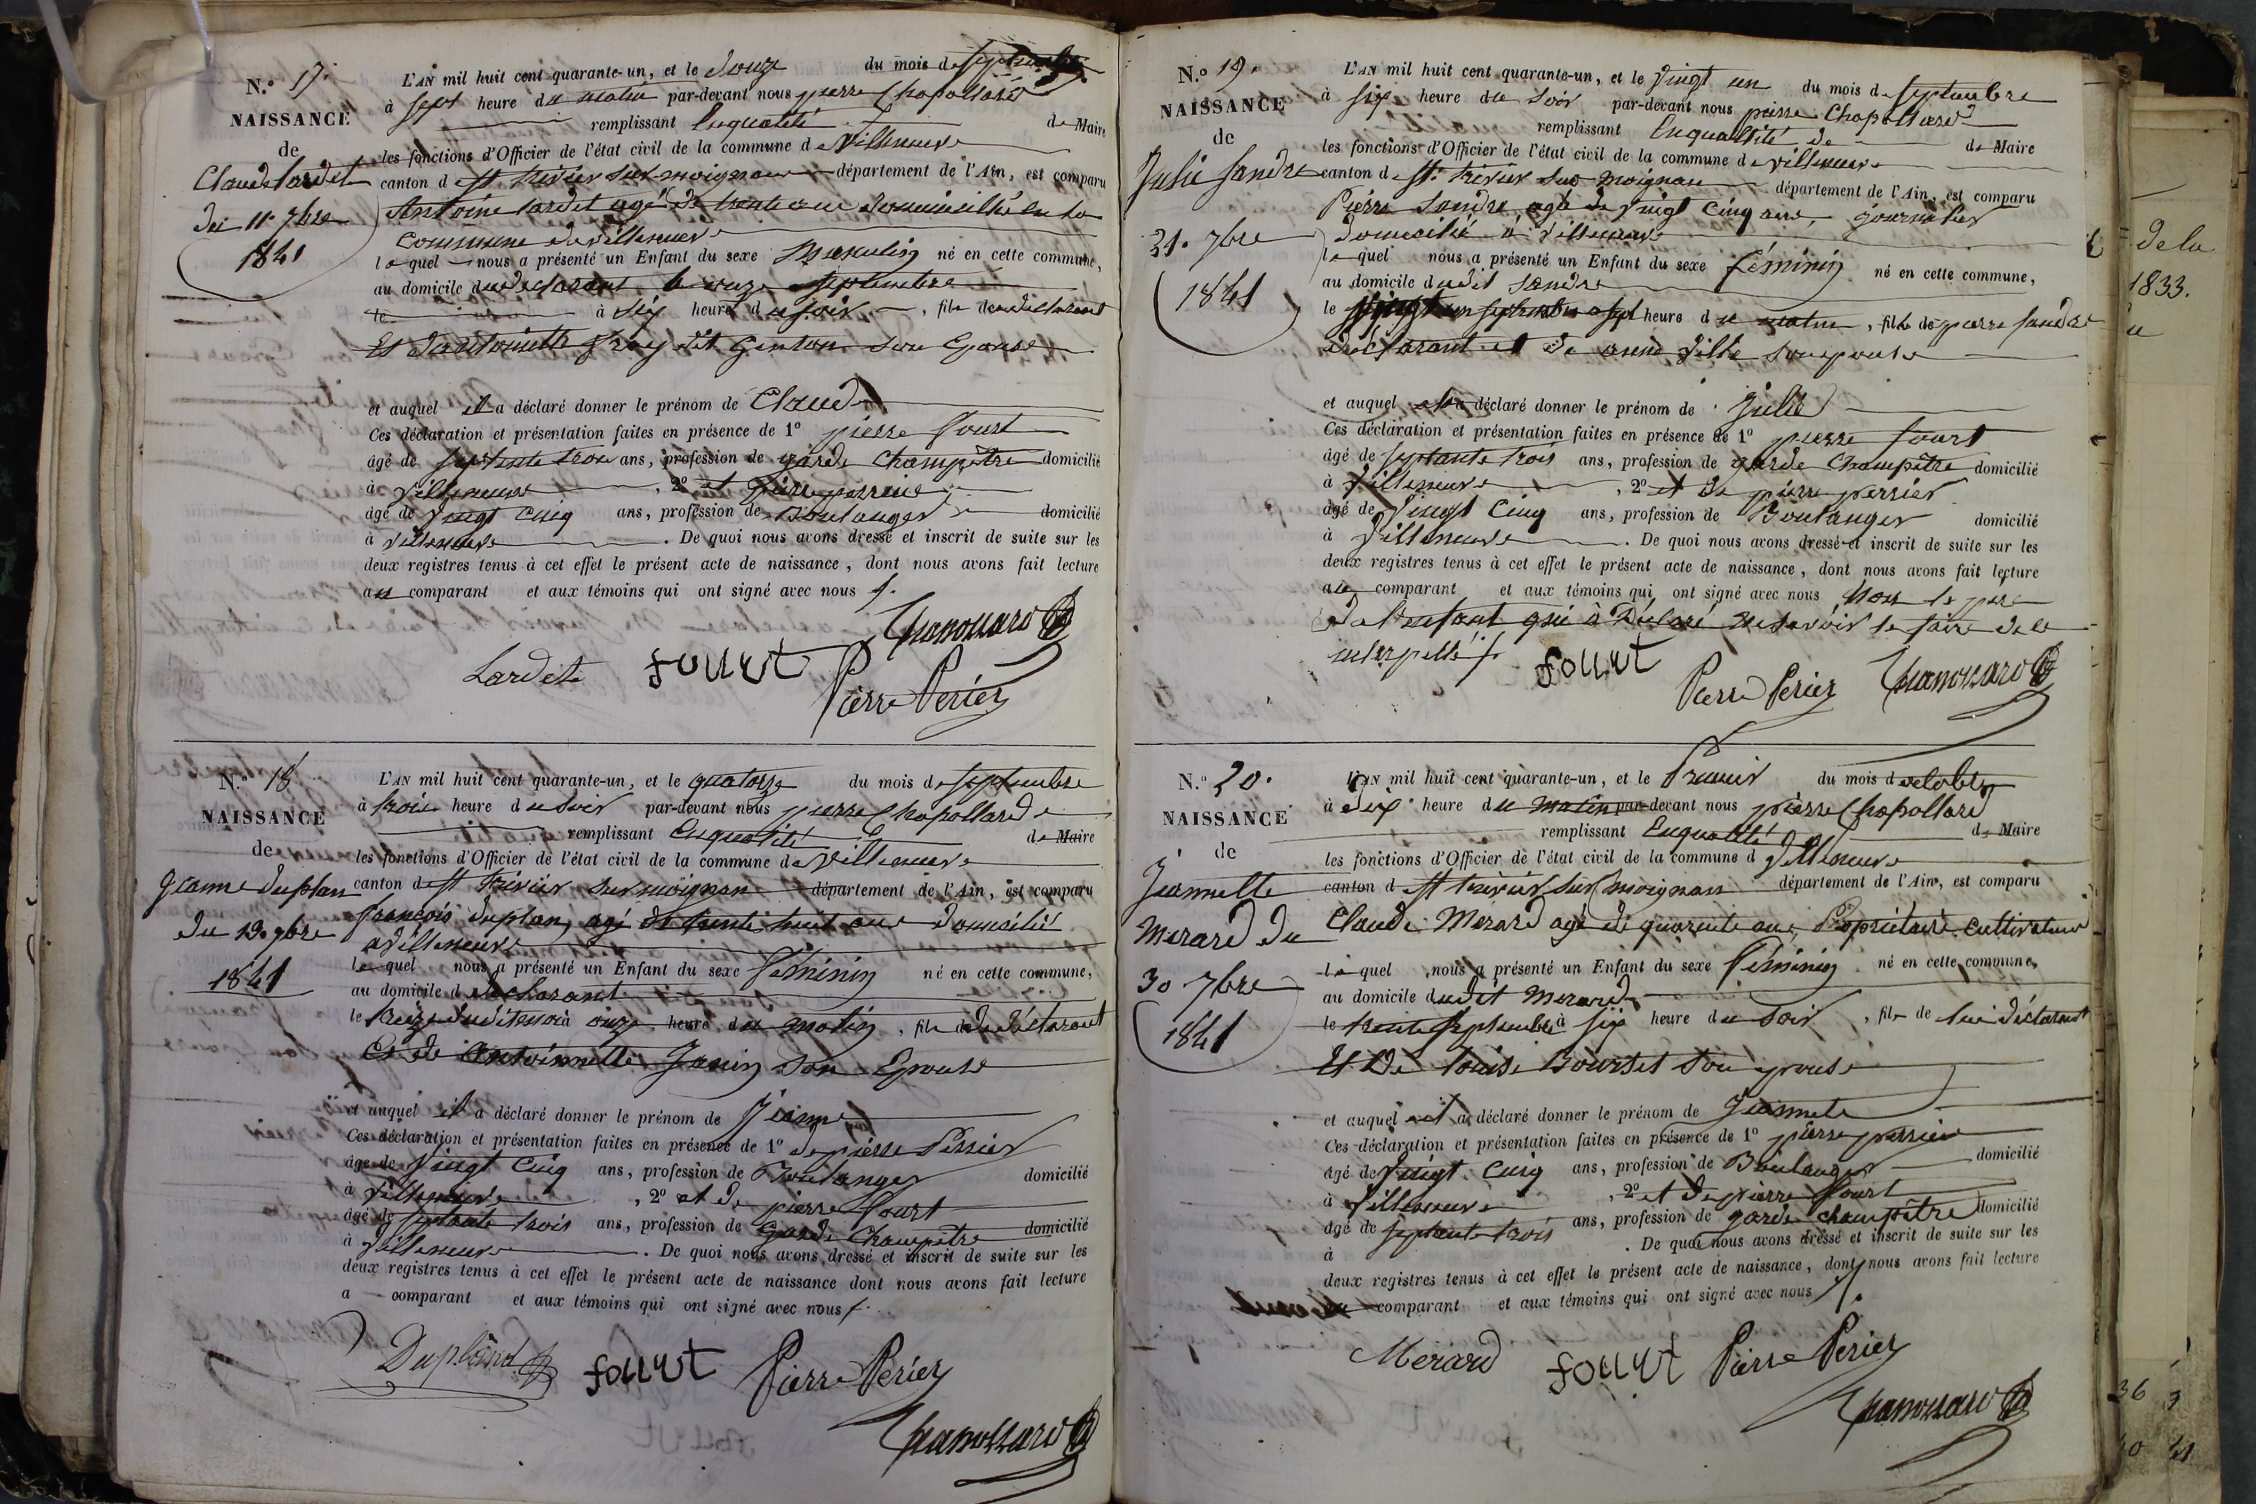 N.º 17.
NAISSANCE
de
Claude Lardet
du 11. 7bre
1841
L'AN mil huit cent quarante-un, et le douze du mois de Septembre
à sept heure du matin par-devant nous pierre Chapollard
remplissant Enqualité de Maire
les fonctions d'Officier de l'état civil de la commune de Villeneuve
canton de St trivier sur moignans département de l'Ain, est comparu
Antoine Lardet agé de trente ans domicilié en la
commune de villeneuve
lequel nous a présenté un Enfant du sexe Masculin né en cette commune,
au domicile du declarant le onze septembre
le à six heure du soir, fils du declarant
Et d'antoinette genton son Epouse
et auquel il a déclaré donner le prénom de Claude
Ces déclaration et présentation faites en présence de 1º pierre fourt
âgé de septante trois ans, profession de garde Champêtre domicilié
à Villeneuve, 2º et pierre perrier
âgé de vingt cinq ans, profession de Boulanger domicilié
à villeneuve. De quoi nous avons dressé et inscrit de suite sur les
deux registres tenus à cet effet le présent acte de naissance, dont nous avons fait lecture
au comparant et aux témoins qui ont signé avec nous
Chapollard
Lardet fourt
Pierre Perier
N.º 18
NAISSANCE
de
Jeanne duplan
du 13. 7bre
1841
L'AN mil huit cent quarante-un, et le quatorze du mois de septembre
à trois heure du soir par-devant nous pierre Chapollard
remplissant Enqualité de Maire
les fonctions d'Officier de l'état civil de la commune de villeneuve
canton de St trivier sur moignans département de l'Ain, est comparu
francois duplan, agé de trente huit ans domicilié
a villeneuve
lequel nous a présenté un Enfant du sexe féminin né en cette commune,
au domicile du declarant
le treize dudit mois à onze heure du matin, fille du déclarant
Et de Antoinette Janin son Epouse
et auquel il a déclaré donner le prénom de Jeanne
Ces déclaration et présentation faites en présence de 1º de pierre Perrier
âgé de vingt cinq ans, profession de Boulanger domicilié
à villeneuve, 2º et de pierre fourt
âgé de septante trois ans, profession de Garde Champetre domicilié
à villeneuve. De quoi nous avons dressé et inscrit de suite sur les
deux registres tenus à cet effet le présent acte de naissance dont nous avons fait lecture
a comparant et aux témoins qui ont signé avec nous
Dupland fourt Pierre Perier
Chapollard
N.º 19.
NAISSANCE
de
Julie Sandre
21. 7bre
1841
L'AN mil huit cent quarante-un, et le vingt un du mois de septembre
à six heure du soir par-devant nous pierre Chapollard
remplissant Enqualité de de Maire
les fonctions d'Officier de l'état civil de la commune de villeneuve
canton de St. trivier sur moignan département de l'Ain, est comparu
Pierre Sandre agé de vingt cinq ans, journalier
domicilié à villeneuve
lequel nous a présenté un Enfant du sexe féminin né en cette commune,
au domicile dudit sandre
le vingt un septembre a sept heure du matin, fille de pierre sandre
declarant et de son epouse
et auquel il a déclaré donner le prénom de Julie
Ces déclaration et présentation faites en présence de 1º pierre fourt
âgé de septante trois ans, profession de garde Champêtre domicilié
à Villeneuve, 2º et de pierre perrier
âgé de vingt cinq ans, profession de Boulanger domicilié
à Villeneuve. De quoi nous avons dressé et inscrit de suite sur les
deux registres tenus à cet effet le présent acte de naissance, dont nous avons fait lecture
au comparant et aux témoins qui ont signé avec nous non le pere
de l'enfant qui à déclaré ne savoir le faire de ce
interpellé
fourt
Pierre Perier Chapollard
N.º 20.
NAISSANCE
de
Jeannette
Merard du
30 7bre
1841
L'AN mil huit cent quarante-un, et le Premier du mois d'octobre
à dix heure du matin par-devant nous pierre Chapollard
remplissant Enqualité de Maire
les fonctions d'Officier de l'état civil de la commune d Villeneuve
canton d St trivier sur moignan département de l'Ain, est comparu
Claude Merard agé de quarante ans Propriétaire cultivateur
lequel nous a présenté un Enfant du sexe Féminin né en cette commune,
au domicile dudit Merard
le trente septembre à six heure du soir, fille de lui déclarant
Et De Louise Bourset son epouse
et auquel il a déclaré donner le prénom de Jeannete
Ces déclaration et présentation faites en présence de 1º pierre perrier
âgé de vingt cinq ans, profession de Boulanger domicilié
à villeneuve, 2º et de pierre fourt
âgé de septante trois ans, profession de garde champêtre domicilié
à. De quoi nous avons dressé et inscrit de suite sur les
deux registres tenus à cet effet le présent acte de naissance, dont nous avons fait lecture
comparant et aux témoins qui ont signé avec nous
Merard fourt Pierre Perier
Chapollard
de la
1833.
36